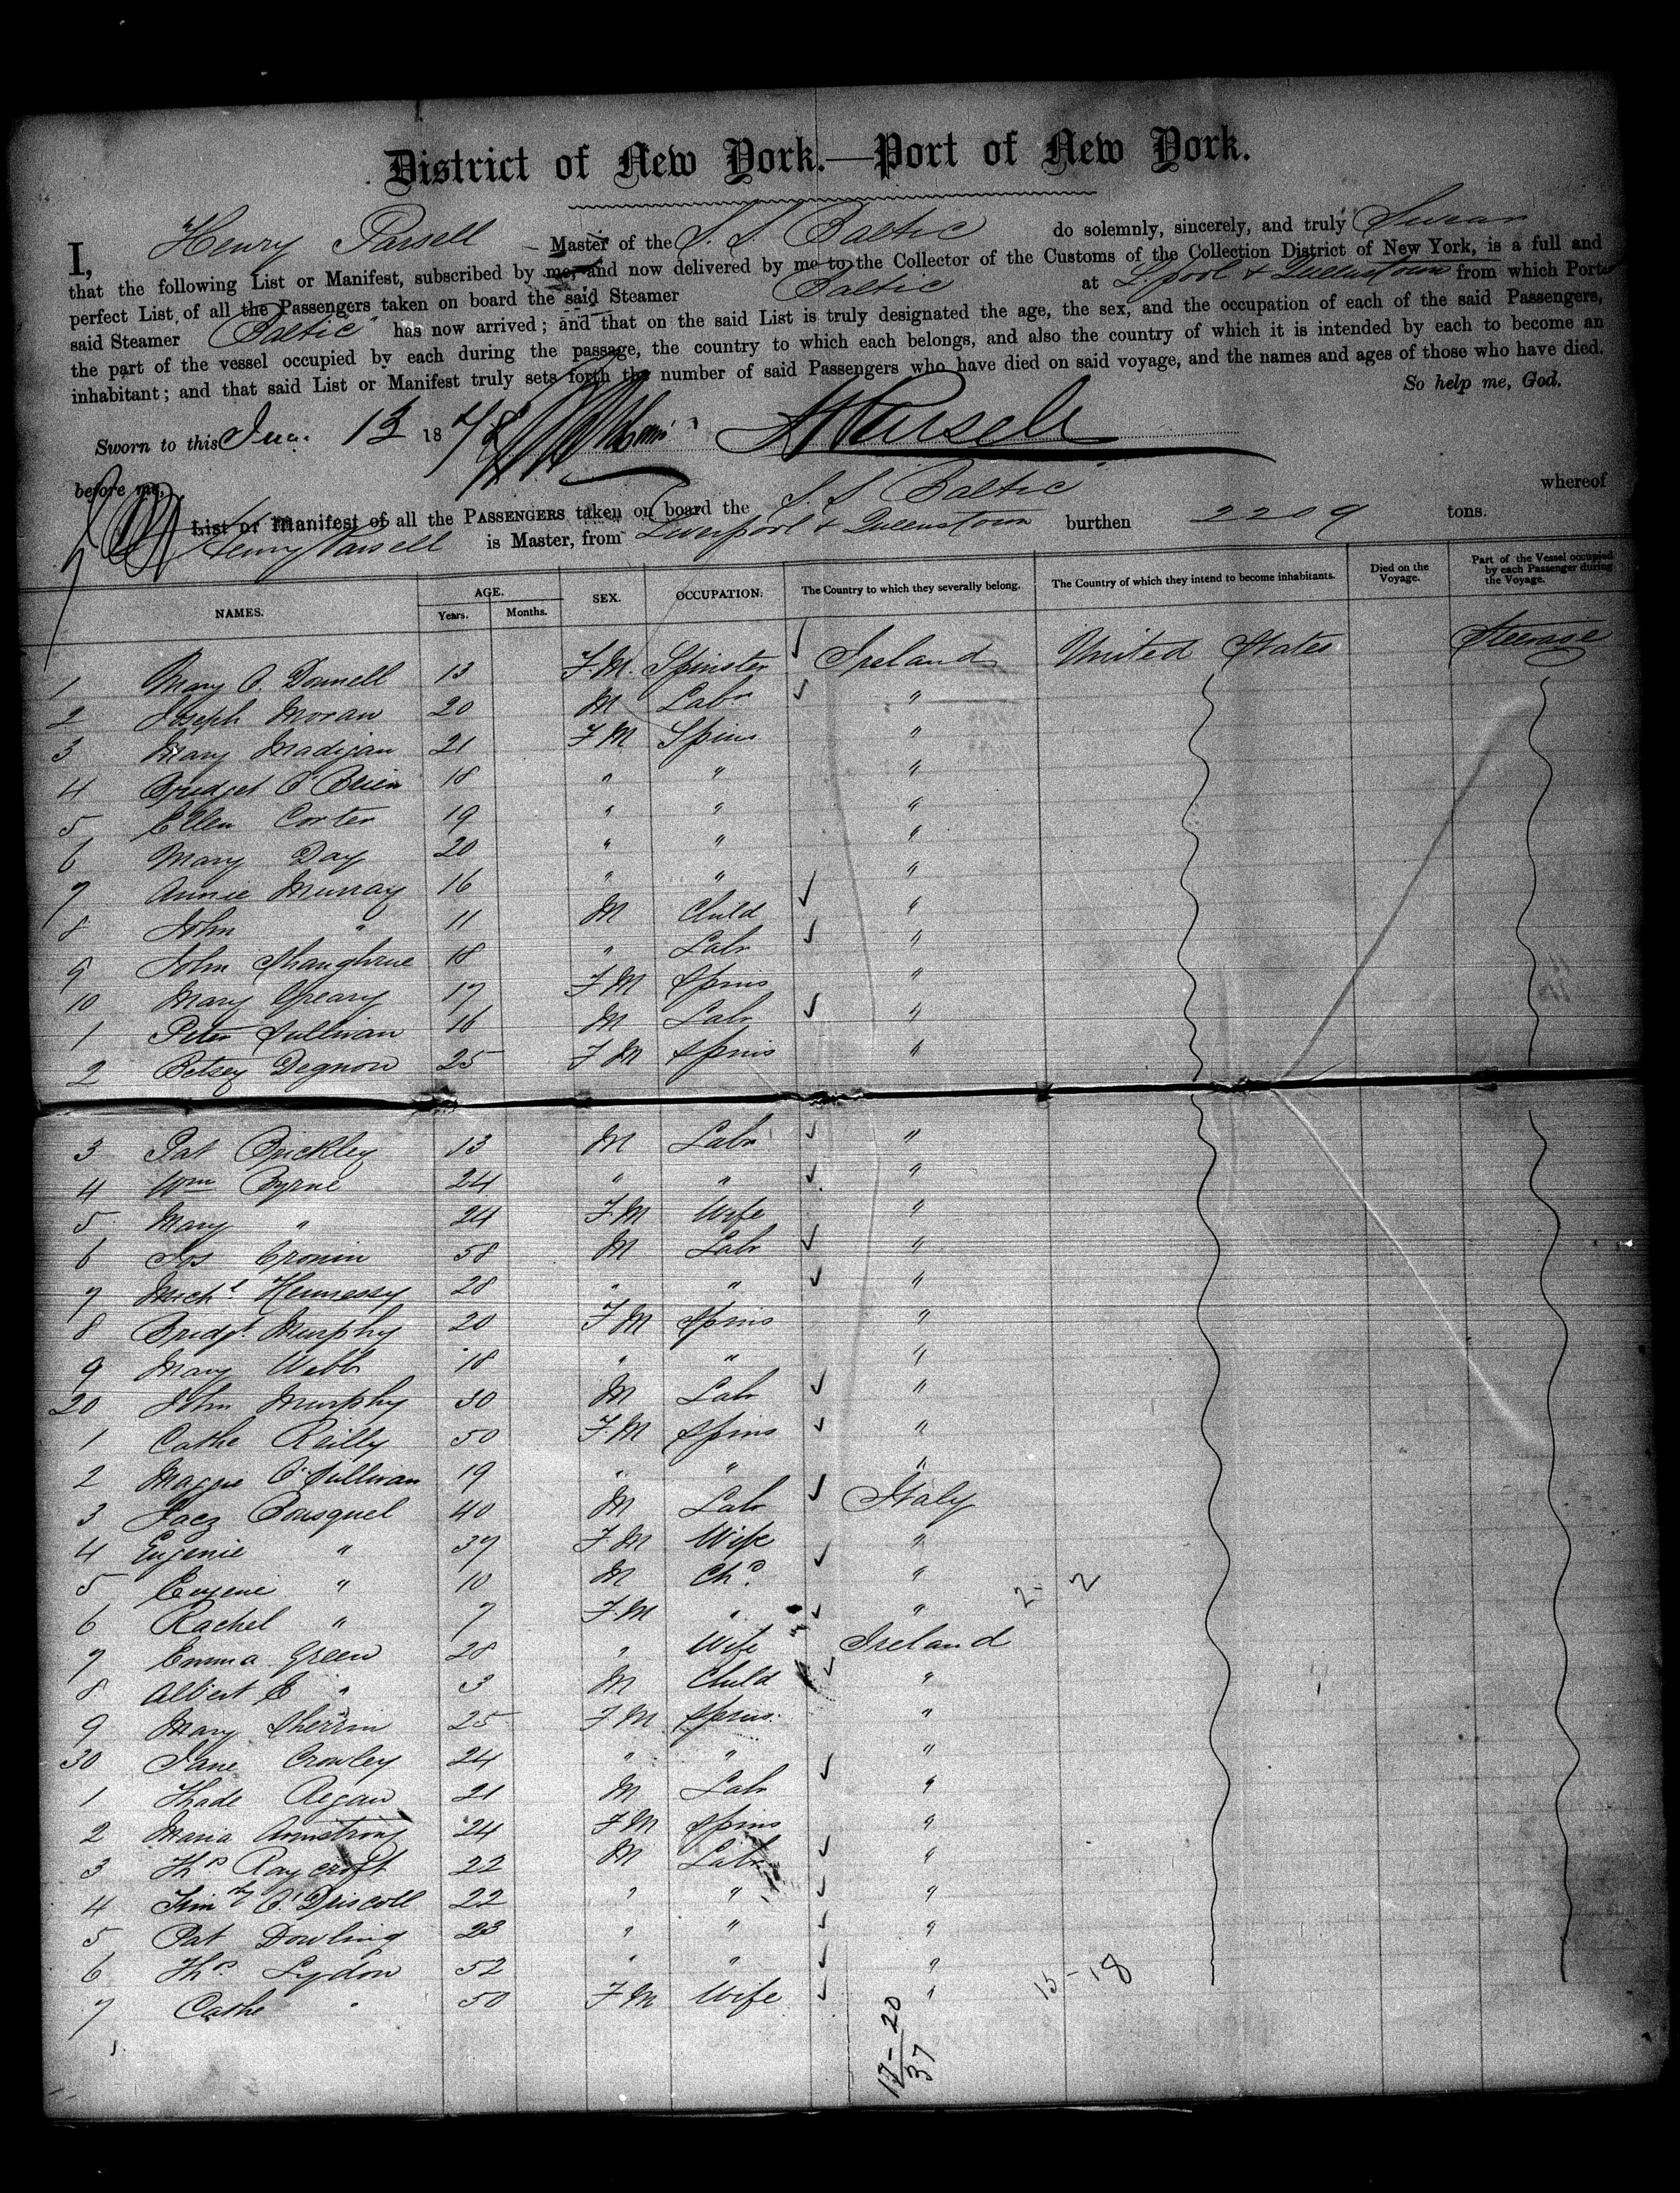 District of New York.—Port of New York.
I, Henry Parsell Master of the S. S. Baltic do solemnly, sincerely, and truly Swear
that the following List or Manifest, subscribed by me, and now delivered by me to the Collector of the Customs of the Collection District of New York, is a full and
perfect List of all the Passengers taken on board the said Steamer Baltic at L.pool & Queenstown from which Port
said Steamer "Baltic" has now arrived; and that on the said List is truly designated the age, the sex, and the occupation of each of the said Passengers,
the part of the vessel occupied by each during the passage, the country to which each belongs, and also the country of which it is intended by each to become an
inhabitant; and that said List or Manifest truly sets forth the number of said Passengers who have died on said voyage, and the names and ages of those who have died.
So help me, God.
Sworn to this 13 1878 H Parsell
before me,
List or Manifest of all the PASSENGERS taken on board the S. S Baltic whereof
Henry Parsell is Master, from Liverpool & Queenstown burthen 2209 tons.
NAMES. AGE. Years. Months. SEX. OCCUPATION. The Country to which they severally belong. The Country of which they intend to become inhabitants. Died on the Voyage. Part of the Vessel occupied by each Passenger during the Voyage.
1 Mary O. Donnell 13 F.M. Spinster Ireland United States Steerage
2 Joseph Moran 20 M Labr "
3 Mary Madigan 21 F M Spins "
4 Bridget O'Brien 18 " " "
5 Ellen Corter 19 " " "
6 Mary Day 20 " " "
7 Annie Murray 16 " " "
8 John " 11 M Child "
9 John Shaughrue 18 " Labr "
10 Mary Geary 17 F M Spins "
1 Peter Sullivan 16 M Labr "
2 Betsey Degnon 25 F M Spins "
3 Pat Brickley 13 M Labr "
4 Wm Byrne 24 " " "
5 Mary " 24 F M Wife "
6 Jos Cronin 58 M Labr "
7 Michl Hennessy 28 " " "
8 Bridgt Murphy 20 F M Spins "
9 Mary Webb 18 " " "
20 John Murphy 30 M Labr "
1 Cathe Reilly 50 F M Spins "
2 Maggie O'Sullivan 19 " " "
3 Jacz Bousquel 40 M Labr Italy
4 Eugenie " 37 F M Wife "
5 Eugene " 10 M Chd. "
6 Rachel " 7 F.M " " 2-2
7 Emma Green 28 " Wife Ireland
8 Albert E " 3 M Child "
9 Mary Sherrin 25 F M Spins. "
30 Jane Crowley 24 " " "
1 Thade Regan 21 M Labr "
2 Maria Armstrong 24 F M Spins "
3 Ths Raycroft 22 M Labr "
4 Timthy O'Driscoll 22 " " "
5 Pat Dowling 23 " " "
6 Ths. Lydon 52 " " "
7 Cathe " 50 F M Wife " 15-18
17-20
37